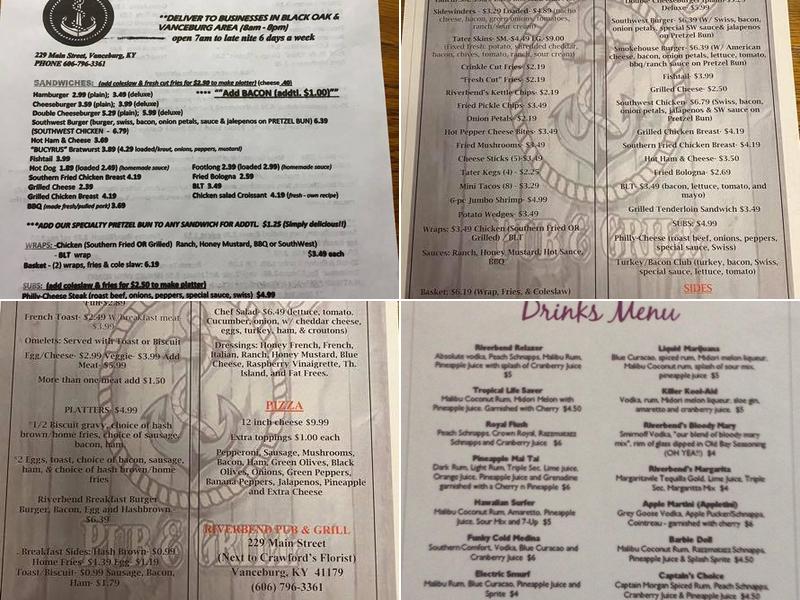 **DELIVER TO BUSINESSES IN BLACK OAK &
VANCEBURG AREA (8am - 8pm)
open 7am to late nite 6 days a week
229 Main Street, Vanceburg, KY
PHONE 606-796-3361
SANDWICHES: (add coleslaw & fresh cut fries for $2.50 to make platter) (cheese .40)
Hamburger 2.99 (plain); 3.49 (deluxe)
**** ""Add BACON (addtl. $1.00)""
Cheeseburger 3.59 (plain); 3.99 (deluxe)
Double Cheeseburger 5.29 (plain); 5.99 (deluxe)
Southwest Burger (burger, swiss, bacon, onion petals, sauce & jalepenos on PRETZEL BUN) 6.39
(SOUTHWEST CHICKEN - 6.79)
Hot Ham & Cheese 3.69
"BUCYRUS" Bratwurst 3.89 (4.29 loaded/kraut, onions, peppers, mustard)
Fishtail 3.99
Hot Dog 1.89 (loaded 2.49) (homemade sauce)
Southern Fried Chicken Breast 4.19
Grilled Cheese 2.39
Grilled Chicken Breast 4.19
BBQ (made fresh/pulled pork) 3.69
Footlong 2.39 (loaded 2.99) (homemade sauce)
Fried Bologna 2.59
BLT 3.49
Chicken salad Croissant 4.19 (fresh - own recipe)
***ADD OUR SPECIALTY PRETZEL BUN TO ANY SANDWICH FOR ADDTL. $1.25 (Simply delicious!!)
WRAPS: -Chicken (Southern Fried OR Grilled) Ranch, Honey Mustard, BBQ or SouthWest)
- BLT wrap
$3.49 each
Basket - (2) wraps, fries & cole slaw: 6.19
SUBS: (add coleslaw & fries for $2.50 to make platter)
Philly-Cheese Steak (roast beef, onions, peppers, special sauce, swiss) $4.99
Sidewinders - $3.29 Loaded- $4.89
cheese, bacon, green onions, tomatoes,
ranch/sour cream)
Tater Skins- SM-$4.49 LG-$9.00
(Fixed fresh: potato, shredded cheddar,
bacon, chives, tomato, ranch, sour cream)
Crinkle Cut Fries- $2.19
"Fresh Cut" Fries- $2.19
Riverbend's Kettle Chips- $2.19
Fried Pickle Chips- $3.49
Onion Petals- $2.19
Hot Pepper Cheese Bites- $3.49
Fried Mushrooms- $3.49
Cheese Sticks (5)-$3.49
Tater Kegs (4) - $2.25
Mini Tacos (8) - $3.29
6-pc Jumbo Shrimp- $4.99
Potato Wedges- $3.49
Wraps: $3.49 Chicken (Southern Fried OR
Grilled) / BLT
Sauces: Ranch, Honey Mustard, Hot Sauce,
BBQ
Basket: $6.19 (Wrap, Fries, & Coleslaw)
Deluxe- $5.99
Southwest Burger- $6.39 (W/ Swiss, bacon,
onion petals, special SW sauce & jalapenos
on Pretzel Bun)
Smokehouse Burger- $6.39 (W/ American
cheese, bacon, onion petals, lettuce, tomato,
bbq/ranch sauce on Pretzel Bun)
Fishtail- $3.99
Grilled Cheese- $2.50
Southwest Chicken- $6.79 (Swiss, bacon,
onion petals, jalapenos & SW sauce on
Pretzel Bun)
Grilled Chicken Breast- $4.19
Southern Fried Chicken Breast - $4.19
Hot Ham & Cheese- $3.50
Fried Bologna- $2.69
BLT- $3.49 (bacon, lettuce, tomato, and
mayo)
Grilled Tenderloin Sandwich $3.49
SUBS: $4.99
Philly-Cheese (roast beef, onions, peppers,
special sauce, Swiss)
Turkey/Bacon Club (turkey, bacon, Swiss,
special sauce, lettuce, tomato)
SIDES
French Toast- $2.49 W/breakfast meat
$3.99
Omelets: Served with Toast or Biscuit
Egg/Cheese- $2.99 Veggie- $3.99 Add
Meat- $5.99
More than one meat add $1.50
PLATTERS- $4.99
*1/2 Biscuit gravy, choice of hash
brown/home fries, choice of sausage,
bacon, ham,
*2 Eggs, toast, choice of bacon, sausage,
ham, & choice of hash brown/home
fries
Riverbend Breakfast Burger
Burger, Bacon, Egg and Hashbrown
$6.39
Breakfast Sides: Hash Brown- $0.99
Home Fries- $1.39 Egg- $1.19
Toast/Biscuit- $0.99 Sausage, Bacon,
Ham- $1.79
Chef Salad- $6.49 (lettuce, tomato,
Cucumber, onion, w/ cheddar cheese,
eggs, turkey, ham, & croutons)
Dressings: Honey French, French,
Italian, Ranch, Honey Mustard, Blue
Cheese, Raspberry Vinaigrette, Th.
Island, and Fat Frees.
PIZZA
12 inch cheese $9.99
Extra toppings $1.00 each
Pepperoni, Sausage, Mushrooms,
Bacon, Ham, Green Olives, Black
Olives, Onions, Green Peppers,
Banana Peppers, Jalapenos, Pineapple
and Extra Cheese
RIVERBEND PUB & GRILL
229 Main Street
(Next to Crawford's Florist)
Vanceburg, KY 41179
(606) 796-3361
Drinks Menu
Riverbend Relaxer
Absolute vodka, Peach Schnapps, Malibu Rum,
Pineapple Juice with splash of Cranberry Juice
$5
Tropical Life Saver
Malibu Coconut Rum, Midori Melon with
Pineapple Juice. Garnished with Cherry $4.50
Royal Flush
Peach Schnapps, Crown Royal, Razzmatazz
Schnapps and Cranberry Juice $6
Pineapple Mai Tai
Dark Rum, Light Rum, Triple Sec, Lime Juice,
Orange Juice, Pineapple and Grenadine
garnished with a Cherry n Pineapple $6
Hawaiian Surfer
Malibu Coconut Rum, Amaretto, Pineapple
Juice, Sour Mix and 7-Up $5
Funky Cold Medina
Southern Comfort, Vodka, Blue Curacao and
Cranberry Juice $6
Electric Smurf
Malibu Rum, Blue Curacao, Pineapple Juice and
Sprite $4
Liquid Marijuana
Blue Curacao, spiced rum, Midori melon liqueur,
Malibu Coconut rum, splash of sour mix,
pineapple juice $5
Killer Kool-Aid
Vodka, rum, Midori melon liqueur, sloe gin,
amaretto and cranberry juice $5
Riverbend's Bloody Mary
Smirnoff Vodka, "our blend of bloody mary
mix", rim of glass dipped in Old Bay Seasoning
(OH YEA!!) $4
Riverbend's Margarita
Margaritaville Tequila Gold, Lime Juice, Triple
Sec, Margarita Mix $4
Apple Martini (Appletini)
Grey Goose Vodka, Apple Pucker/Schnapps,
Cointreau - garnished with cherry $6
Barbie Doll
Malibu Coconut Rum, Razzmatazz Schnapps,
Pineapple Juice & Splash Sprite $4.50
Captain's Choice
Captain Morgan Spiced Rum, Peach Schnapps,
Cranberry Juice & Pineapple Juice $4.50